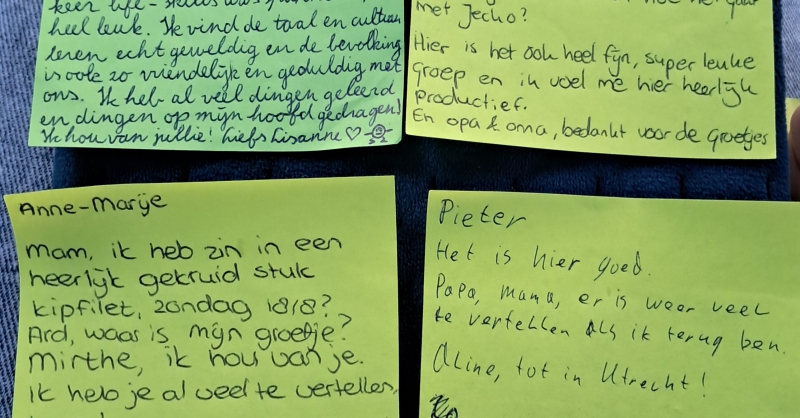 keer life-skills
heel leuk. Ik vind de taal en cultuur
leren echt geweldig en de bevolking
is ook zo vriendelijk en geduldig met
ons. Ik heb al veel dingen geleerd
en dingen op mijn hoofd gedragen!
Ik hou van jullie! Liefs Lisanne ♡
met Jecho?
Hier is het ook heel fijn, super leuke
groep en ik voel me hier heerlijk
productief.
En opa & oma, bedankt voor de groetjes
Anne-Marije
Mam, ik heb zin in een
heerlijk gekruid stuk
kipfilet, zondag 18/8?
Ard, waar is mijn groetje?
Mirthe, ik hou van je.
Ik heb je al veel te vertellen,
Pieter
Het is hier goed.
Papa, mama, er is weer veel
te vertellen als ik terug ben.
Aline, tot in Utrecht!